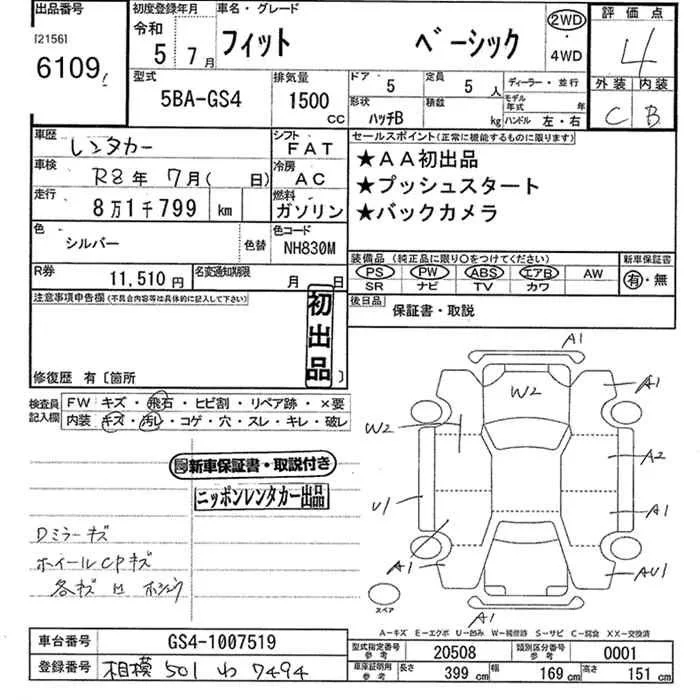 出品番号 初度登録年月 車名・グレード 2WD 評価点
[2156] 令和
6109 5 7月 フィット ベーシック ・ 4WD 4
型式 排気量 ドア 5 定員 5 人 ディーラー・並行 外装 内装
5BA-GS4 1500 CC 形状 ハッチB 積載 kg モデル年式 年 C B
ハンドル 左・右
車歴 レンタカー シフト FAT セールスポイント(正常に機能するものに限ります)
車検 R8年 7月( 日) 冷房 AC ★AA初出品
走行 8万1千799 km 燃料 ガソリン ★プッシュスタート
★バックカメラ
色 シルバー 色替 色コード NH830M
装備品(純正品に限り○をつけてください) 新車保証書
R券 11,510円 名変通知期限 月 日 PS PW ABS エアB AW 有・無
SR ナビ TV カワ
注意事項申告欄(不具合内容等は具体的に記入して下さい) 後日品 保証書・取説
初出品
修復歴 有〔箇所 〕
検査員記入欄 FW キズ・飛石・ヒビ割・リペア跡・×要
内装 キズ・汚レ・コゲ・穴・スレ・キレ・破レ
新車保証書・取説付き
ニッポンレンタカー出品
Dミラーキズ
ホイールCPキズ
A1
W2 A1
W2 A2
U1 A1
A1 AU1
スペア A1
A-キズ E-エクボ U-凹み W-補修跡 S-サビ C-腐食 XX-交換済
車台番号 GS4-1007519 型式指定番号 参考 20508 類別区分番号 参考 0001
登録番号 相模 501 わ 7494 車庫証明用 参考 長さ 399 cm 幅 169 cm 高さ 151 cm